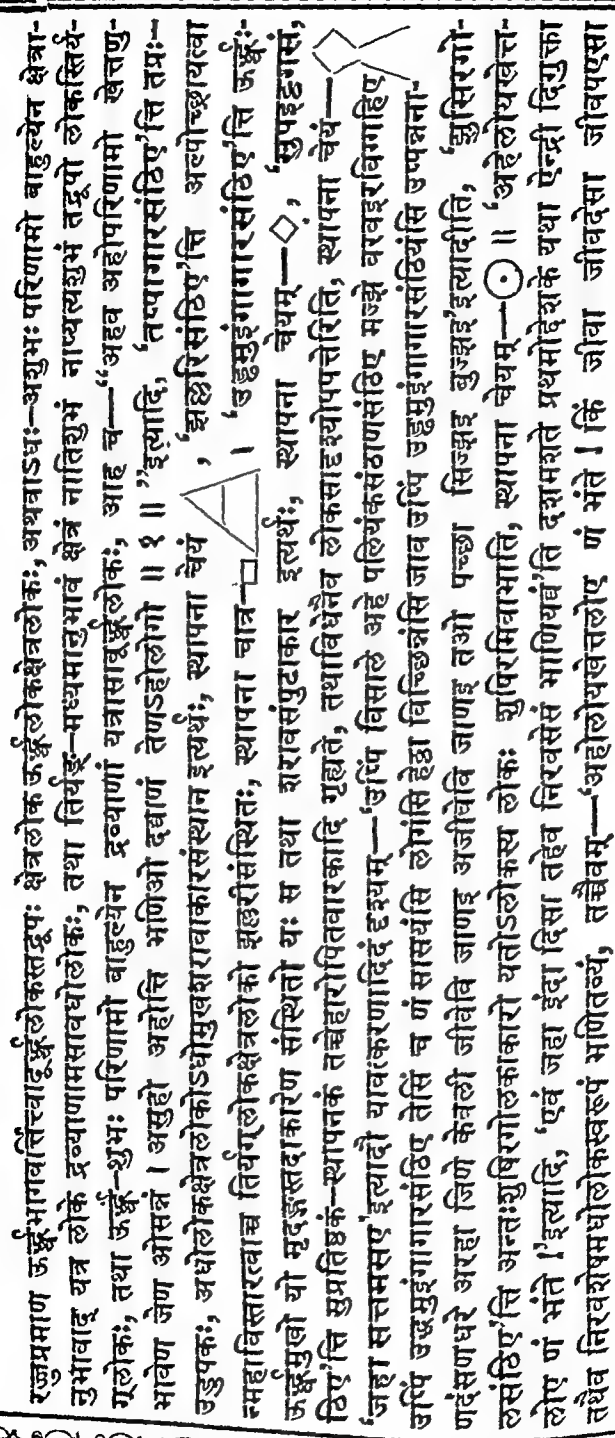 रज्जुप्रमाण ऊर्द्ध्वभागवर्त्तित्वादूर्द्ध्वलोकस्तद्रूपः क्षेत्रलोक ऊर्द्ध्वलोकक्षेत्रलोकः, अथवाऽधः—अशुभः परिणामो बाहुल्येन क्षेत्रा-
नुभावाद् यत्र लोके द्रव्याणामसावधोलोकः, तथा तिर्यङ्—मध्यमानुभावं क्षेत्रं नातिशुभं नाप्यत्यशुभं तद्रूपो लोकस्तिर्य-
ग्लोकः, तथा ऊर्द्ध्वं—शुभः परिणामो बाहुल्येन द्रव्याणां यत्रासावूर्द्ध्वलोकः, आह च—“अहव अहोपरिणामो खेत्तणु-
भावेण जेण ओसन्नं । असुहो अहोत्ति भणिओ दव्वाणं तेणऽहोलोगो ॥ १ ॥” इत्यादि, ‘तप्पागारसंठिए’त्ति तप्रः—
उडुपकः, अधोलोकक्षेत्रलोकोऽधोमुखशरावाकारसंस्थान इत्यर्थः, स्थापना चेयं , ‘झल्लरिसंठिए’त्ति अल्पोच्छ्रायत्वा-
न्महाविस्तारत्वाच्च तिर्यग्लोकक्षेत्रलोको झल्लरीसंस्थितः, स्थापना चात्र— । ‘उड्ढमुइंगागारसंठिए’त्ति ऊर्द्ध्वः-
ऊर्द्ध्वमुखो यो मृदङ्गस्तदाकारेण संस्थितो यः स तथा शरावसंपुटाकार इत्यर्थः, स्थापना चेयम्— , ‘सुपइट्ठगसं-
ठिए’त्ति सुप्रतिष्ठकं—स्थापनकं तच्चेहारोपितवारकादि गृह्यते, तथाविधेनैव लोकसादृश्योपपत्तेरिति, स्थापना चेयं—
‘जहा सत्तमसए’इत्यादौ यावत्करणादिदं दृश्यम्—‘उप्पिं विसाले अहे पलियंकसंठाणसंठिए मज्झे वरवइरविग्गहिए
उप्पिं उद्धमुइंगागारसंठिए तेसिं च णं सासयंसि लोगंसि हेट्ठा विच्छिन्नंसि जाव उप्पिं उड्ढमुइंगागारसंठियंसि उप्पन्नना-
णदंसणधरे अरहा जिणे केवली जीवेवि जाणइ अजीवेवि जाणइ तओ पच्छा सिज्झइ बुज्झइ’इत्यादीति, ‘झुसिरगो-
लसंठिए’त्ति अन्तःशुषिरगोलकाकारो यतोऽलोकस्य लोकः शुषिरमिवाभाति, स्थापना चेयम्— ॥ ‘अहेलोयखेत्त-
लोए णं भंते !’इत्यादि, ‘एवं जहा इंदा दिसा तहेव निरवसेसं भाणियव्वं’ति दशमशते प्रथमोद्देशके यथा ऐन्द्री दिगुक्ता
तथैव निरवशेषमधोलोकस्वरूपं भणितव्यं, तच्चैवम्—‘अहोलोयखेत्तलोए णं भंते ! किं जीवा जीवदेसा जीवपएसा